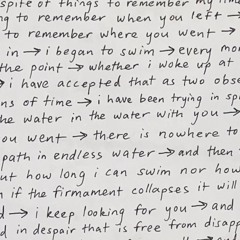 spite of things to remember my
ng to remember when you left →
to remember where you went →
in → i began to swim → every mor
the point → whether i woke up at
→ i have accepted that as two obse
ns of time → i have been trying in spi
he water in the water with you →
ou went → there is nowhere to
path in endless water → and then
ut how long i can swim nor how
n if the firmament collapses it will
d → i keep looking for you → and
d in despair that is free from disapp